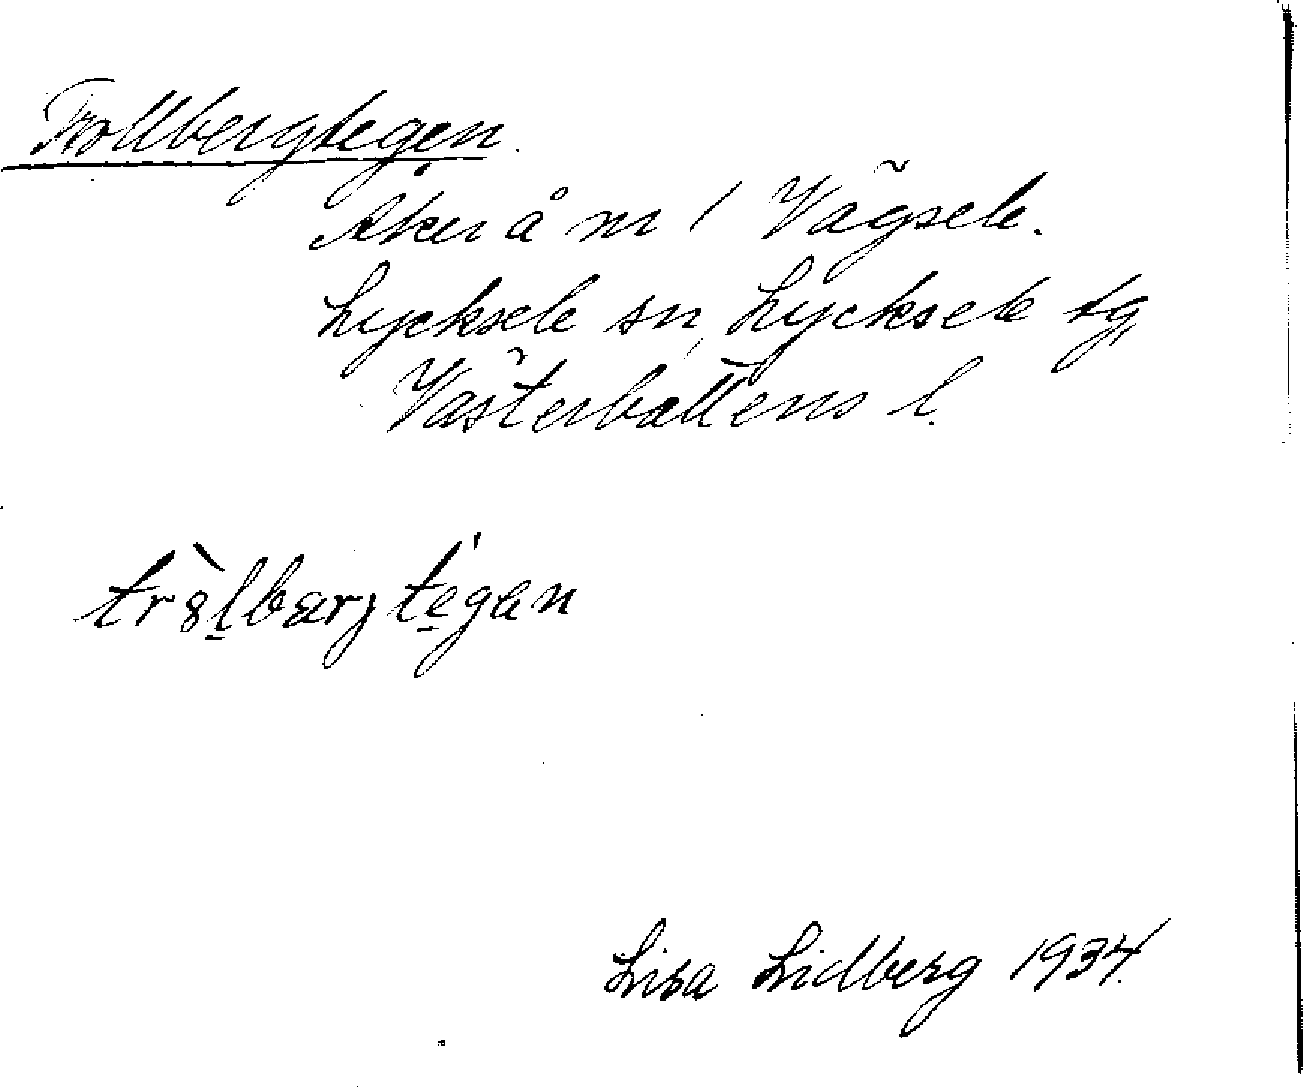 Trollbergtegen.
Åker å nr 1 Vägsele.
Lycksele sn, Lycksele tg
Västerbottens l.
Lisa Lidberg 1934.